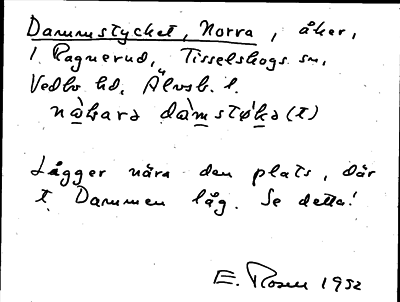 Dammstycket, Norra, åker,
1. Ragnerud, Tisselskogs sn,
Vedbo hd, Älvsb. l.
nò̱ḵara dàm̱støḵa (t)
Lågger nära den plats, där
t. Dammen låg. Se detta!
E. Rosen 1932